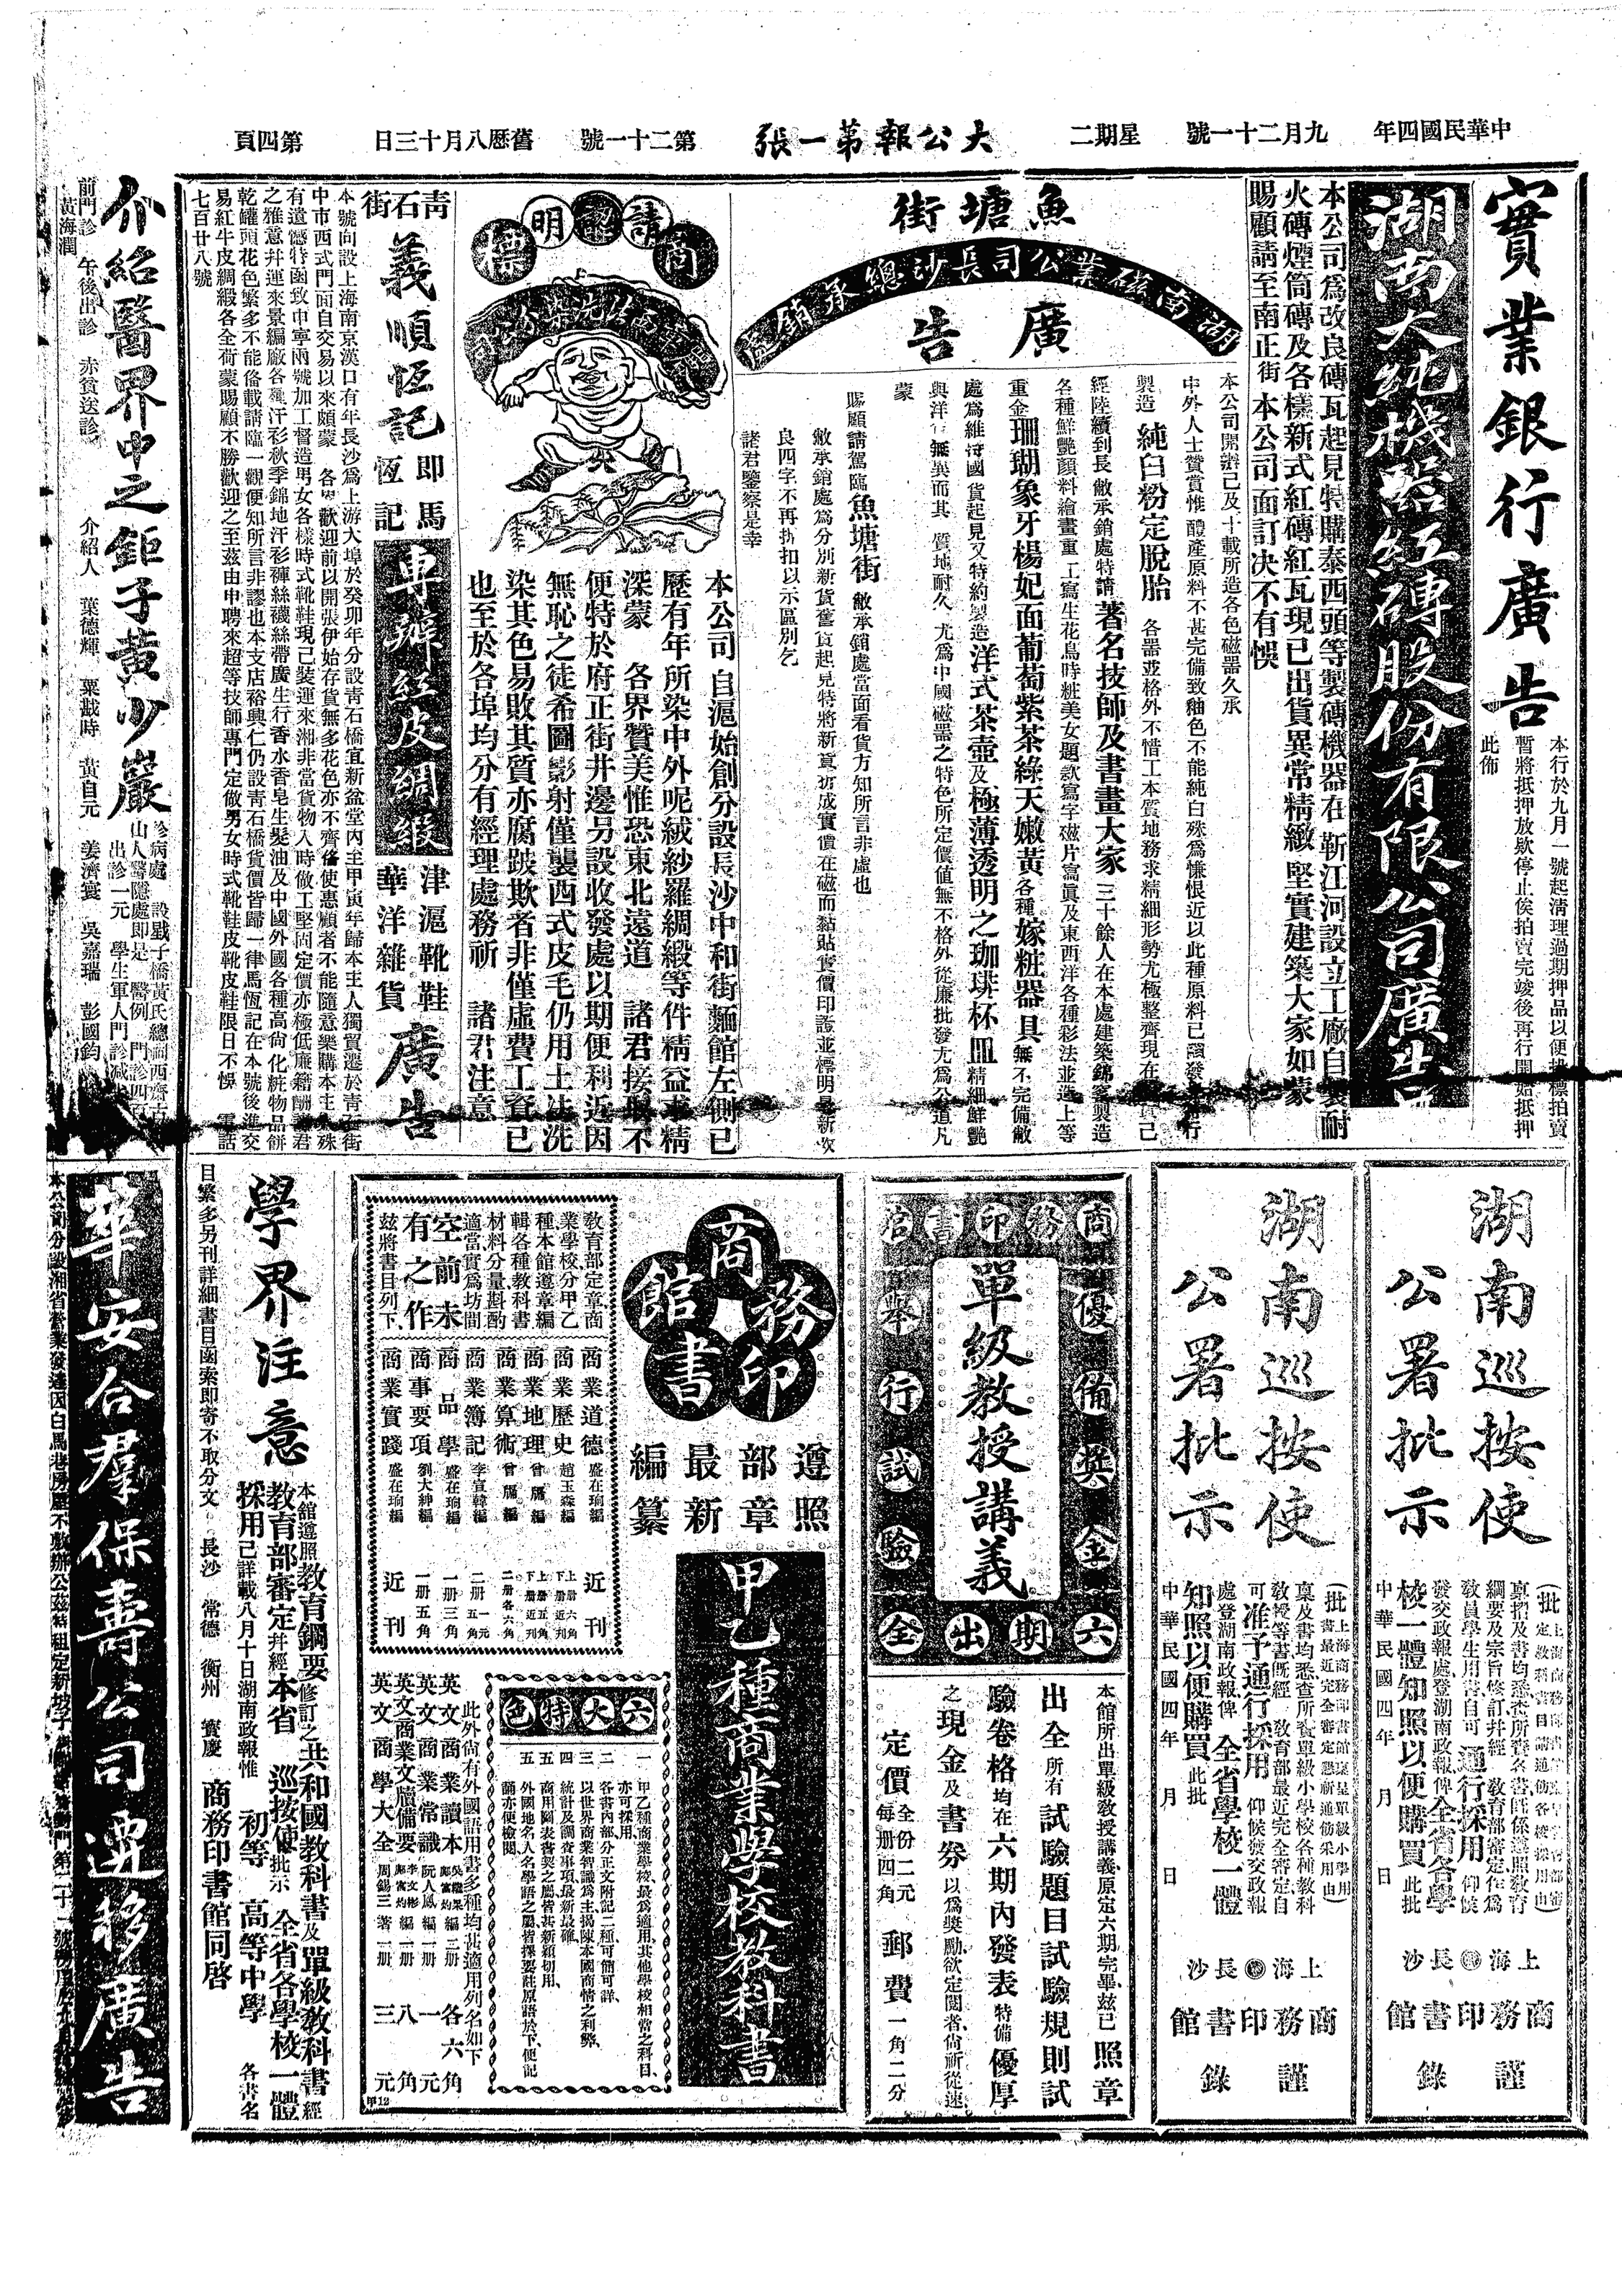 中華民國四年
九月二十一號
星期二
大公報第一張
第二十一號
舊歷八月十三日
第四頁
實業銀行廣告
本行於九月一號起清理過期押品以便投標拍賣
暫將抵押放欵停止俟拍賣完竣後再行開始抵押
此佈
湖南大純機器紅磚股份有限公司廣告
本公司爲改良磚瓦起見特購泰西頭等製磚機器在 靳江河設立工廠自製耐
火磚煙筒磚及各樣新式紅磚紅瓦現已出貨異常精緻 堅實建築大家如蒙
賜顧請至南正街 本公司面訂決不有悞
魚塘街
湖南磁業公司長沙總承銷處
廣告
本公司開辦已及十載所造各色磁器久承
中外人士贊賞惟 醴產原料不甚完備致釉色不能純白殊爲慊恨近以此種原料已
製造 純白粉定脫胎 各器並格外不惜工本質地務求精細形勢尤極整齊現在
經陸續到長 敝承銷處特請 著名技師及書畫大家 三十餘人在本處建築錦窰製造
各種鮮艷顏料繪畫重工寫生花鳥時粧美女題欵寫字磁片寫眞及東西洋各種彩法並造上等
重金珊瑚象牙楊妃面葡萄紫茶綠天嫩黃 各種 嫁粧器具 無不完備敝
處爲維持國貨起見又特約製造 洋式茶壺 及 極薄透明之珈琲杯皿 精細鮮艷
與洋 無異而其 質地耐久 尤爲中國磁器之特色所定價值無不格外從廉批發尤爲公道凡
蒙
賜顧請駕臨 魚塘街 敝承銷處當面看貨方知所言非虛也
敝承銷處爲分別新貨舊貨起見特將新貨折成實價在磁面黏貼實價印證並標明最新改
良四字不再折扣以示區別乞
諸君鑒察是幸
商標
請認明
本公司 自滬始創分設長沙中和街麵館左側已
歷有年所染中外呢絨紗羅綢緞等件精益求精
深蒙 各界贊美惟恐東北遠道 諸君接取不
便特於府正街井邊另設收發處以期便利近因
無恥之徒希圖影射僅襲西式皮毛仍用土法洗
染其色易敗其質亦腐跛欺者非僅虛費工資已
也至於各埠均分有經理處務祈 諸君注意
青石街
義順恆記
即馬恆記
津滬靴鞋
華洋雜貨
廣告
本號向設上海南京漢口有年長沙爲上游大埠於癸卯年分設青石橋宜新盆堂內主甲寅年歸本主人獨買遷於青石街
中市西式門面自交易以來頗蒙 各界歡迎前以開張伊始存貨無多花色亦不齊備使惠顧者不能隨意樂購本主人殊
有遺憾特函致申寧兩號加工督造男女各樣時式靴鞋現已裝運來湘非當貨物入時做工堅固定價亦極低廉藉酬諸君
之雅意幷運來景綸廠各種汗衫秋季錦地汗衫褲絲襪絲帶廣生行香水香皂生髮油及中國外國各種高尚化粧物品餅
乾罐頭花色繁多不能俻載請臨一觀便知所言非謬也本支店裕興仁仍設青石橋貨價皆歸一律馬恆記在本號後進交
易紅牛皮綢緞各全荷蒙賜顧不勝歡迎之至茲由申聘來超等技師專門定做男女時式靴鞋皮靴皮鞋限日不悞 電話
七百廿八號
介紹醫界中之鉅子黃少巖
出診一元 學生軍人門診減半
前門診 午後出診 赤貧送診
介紹人 葉德輝 粟戡時 黃自元 姜濟寰 吳嘉瑞 彭國鈞
黃海潤
湖南巡按使
公署批示
校一體知照以便購買 此批
中華民國四年 月 日
上海長沙
商務印書館
謹錄
湖南巡按使
公署批示
稟及書均悉查所賫單級小學校各種教科
教授等書既經 教育部最近完全審定自
可准予通行採用 仰候發交政報
處登湖南政報俾 全省學校一體
知照以便購買 此批
中華民國四年 月 日
上海長沙
商務印書館
謹錄
商務印書館
單級教授講義
優備獎金
舉行試驗
六期出全
本館所出單級教授講義原定六期完畢茲已 照章
出全 所有 試驗題目試驗規則試
驗卷格 均在 六期內發表 特備 優厚
之 現金 及 書券 以爲獎勵欲定閱者尚祈從速
定價 全份二元 每册四角 郵費一角二分
商務印書館
遵照部章最新編纂
甲乙種商業學校教科書
教育部定章商
業學校分甲乙
種本館遵章編
輯各種教科書
材料分量斟酌
適當實爲坊間
空前未
有之作
茲將書目列下
商業道德 盛在珦編 近刊
商業歷史 趙玉森編 上册六角 下册近刊
商業地理 曾膺編 上册五角 下册近刊
商業算術 曾膺編 二册各六角
商業簿記 李宣韓編 二册一元五角
商品學 盛在珦編 一册三角
商事要項 劉大紳編 一册五角
商業實踐 盛在珦編 近刊
六大特色
一 甲乙種商業學校最爲適用其他學校相當之科目
亦可採用
二 各書內部分正文附記二種可簡可詳
三 以世界商業智識爲主揭陳本國商情之利弊
四 統計及調查事項最新最確
五 商用圖表書契之屬皆甚新穎切用
外國地名人名學語之屬皆採要註原語於下便記
誦亦便檢閱
此外尚有外國語用書多種均甚適用列名如下
英文商業讀本 三册 各六角
英文商業常識 阮人鳳編 一册 一元
英文商業文牘備要 一册 八角
英文商學大全 周錫三著 一册 三元
學界注意
本舘遵照 教育綱要 修訂之 共和國教科書 及 單級教科書 經
教育部審定 幷經 本省 巡按使 批示 全省各學校一體
採用 已詳載八月十日湖南政報惟 初等 高等 中學 各書名
目繁多另刊詳細書目函索即寄不取分文 長沙 常德 衡州 寶慶 商務印書館同啓
華安合羣保壽公司遷移廣告